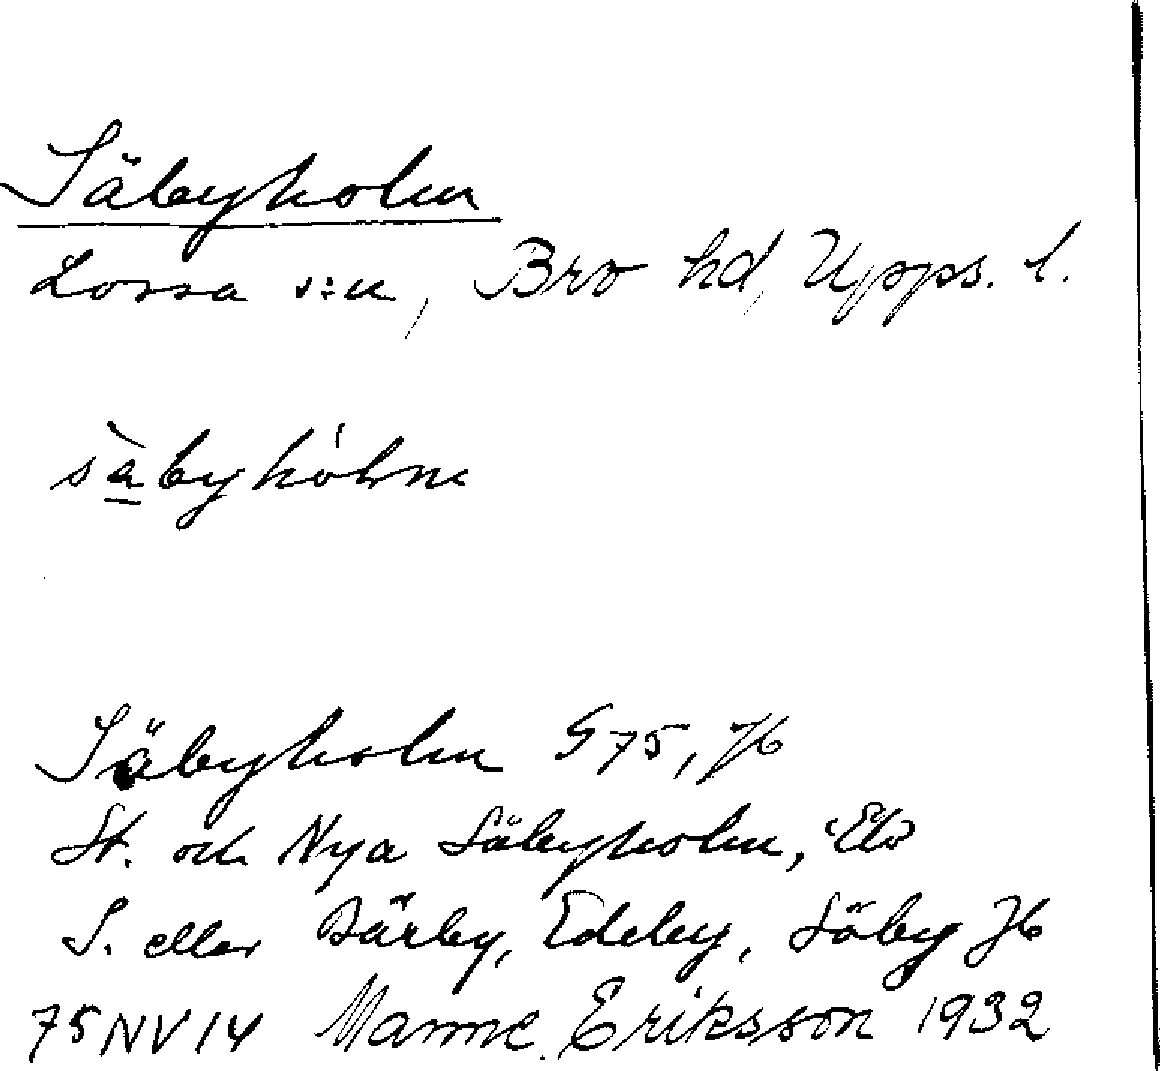 Säbyholm
Lossa s:n, Bro hd, Upps. l.
sàbyhòlm
Säbyholm G75, Jb
St. och Nya Säbyholm, Eb
S. eller Bärby, Edeby, Säby Jb
75NV14 Manne Eriksson 1932